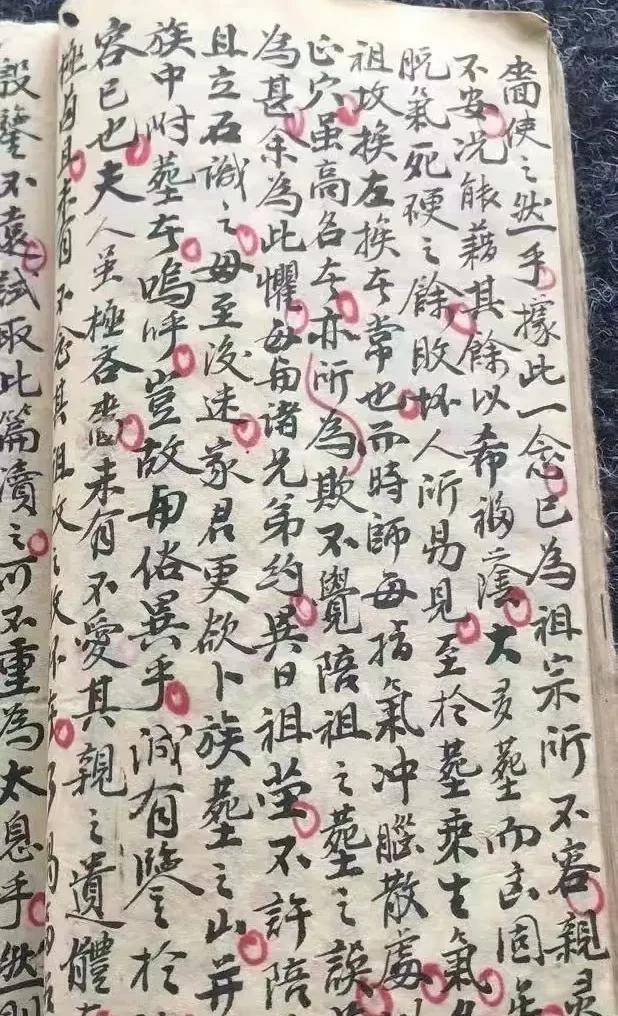 嗇使之然乎據此一念已為祖宗所不容親灵
不安况能藉其餘以希福蔭大多塟而凶固
脱氣死硬之餘敗坏人所易見至於塟乘生氣
祖坟挨左挨右常也而時師每指氣冲腦散處
正穴虽高名者亦所為欺不覺陪祖之塟之誤
為甚余為此懼每與诸兄弟约異日祖茔不許陪
且立石識之毋至後迷家君更欲卜族塟之山并
族中附塟者嗚呼豈故與俗異乎诚有鑒於
容已也夫人虽極吝嗇未有不愛其親之遺體
極自且未有不念其祖坟之
殷鑒不遠試取此篇瀆之可不重為太息乎然則